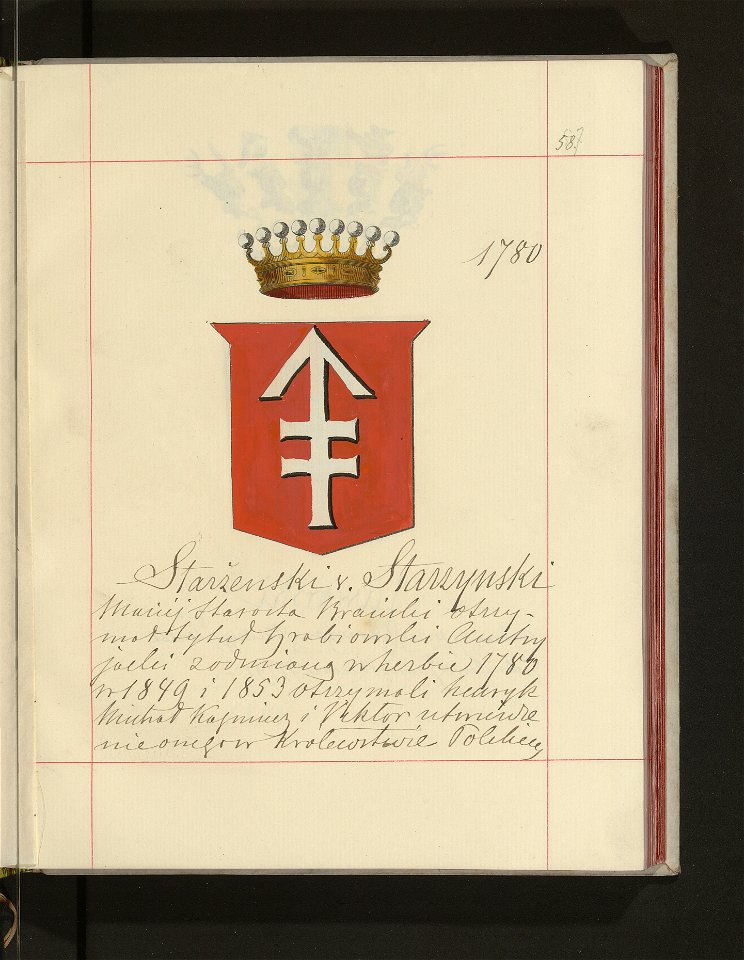 58.
1780
Starżenski v. Starzynski
Maciej Starosta Brański otrzy-
mał tytuł hrabiowski Austry
jacki z odmianą w herbie 1780
w 1849 i 1853 otrzymali henryk
Michał Kazmierz i Viktor utwierdze
nie onego w Królewstwie Polskiem